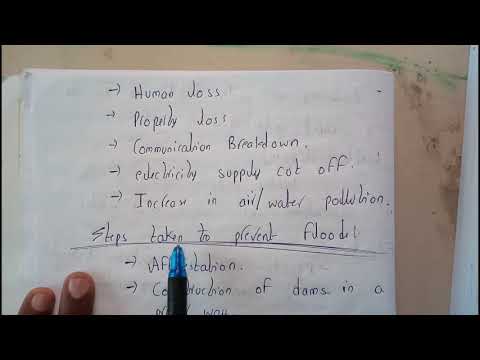 → Human loss.
→ Property loss
→ Communication Breakdown.
→ electricity supply cut off.
→ Increase in air/water pollution.
Steps taken to prevent floods!
→ Afforestation.
→ Construction of dams in a
way